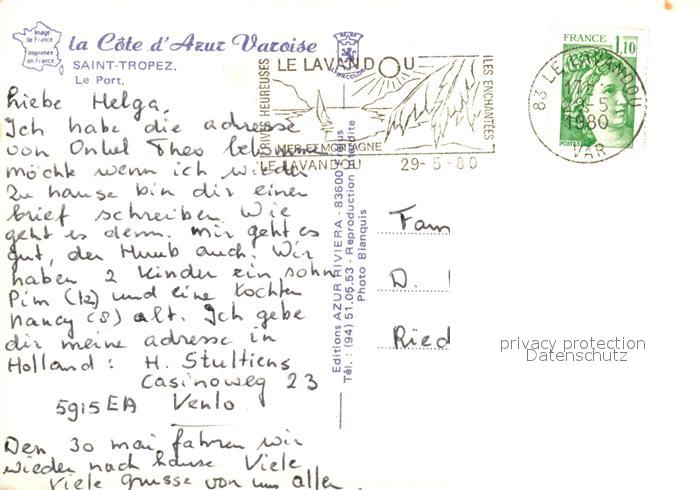 Image
de France
Imprimée
en France
la Côte d'Azur Varoise
SAINT-TROPEZ.
Le Port.
Liebe Helga,
Ich habe die adresse
von Onkel Theo bekommen
möchte wenn ich wieder
zu hause bin dir einen
brief schreiben. Wie
geht es denn. mir geht es
gut, der Huub auch. Wir
haben 2 Kinder ein sohn
Pim (12) und eine tochter
nancy (8) alt. Ich gebe
dir meine adresse in
Holland : H. Stultiens
Casinoweg 23
5915EA Venlo
Den 30 mai fahren wir
wieder nach hause Viele
Viele grusse von uns allen
Editions AZUR RIVIERA - 83600
Tél.: (94) 51.05.53 - Reproduction interdite
Photo Bianquis
HEUREUSES
LE LAVANDOU
ILES ENCHANTÉES
MER ET MONTAGNE
LE LAVANDOU 29-5-80
FRANCE
1,10
POSTES
83 LE LAVANDOU
17H
28-5
1980
VAR
Fam
D.
Ried
privacy protection
Datenschutz